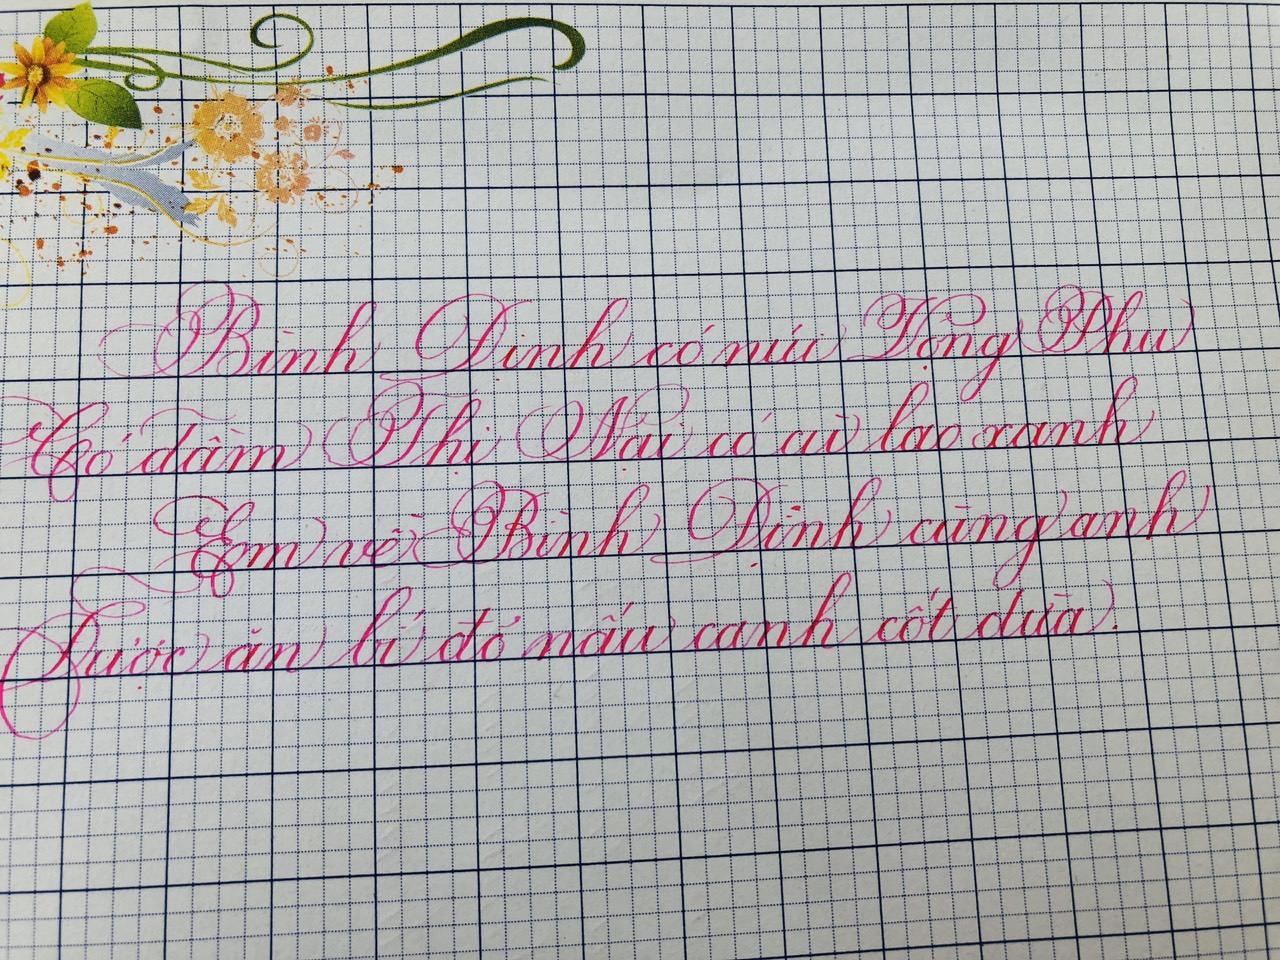 Bình Định có núi Vọng Phu
Có đầm Thị Nại có cù lao xanh
Em về Bình Định cùng anh
Được ăn bí đỏ nấu canh cốt dừa.